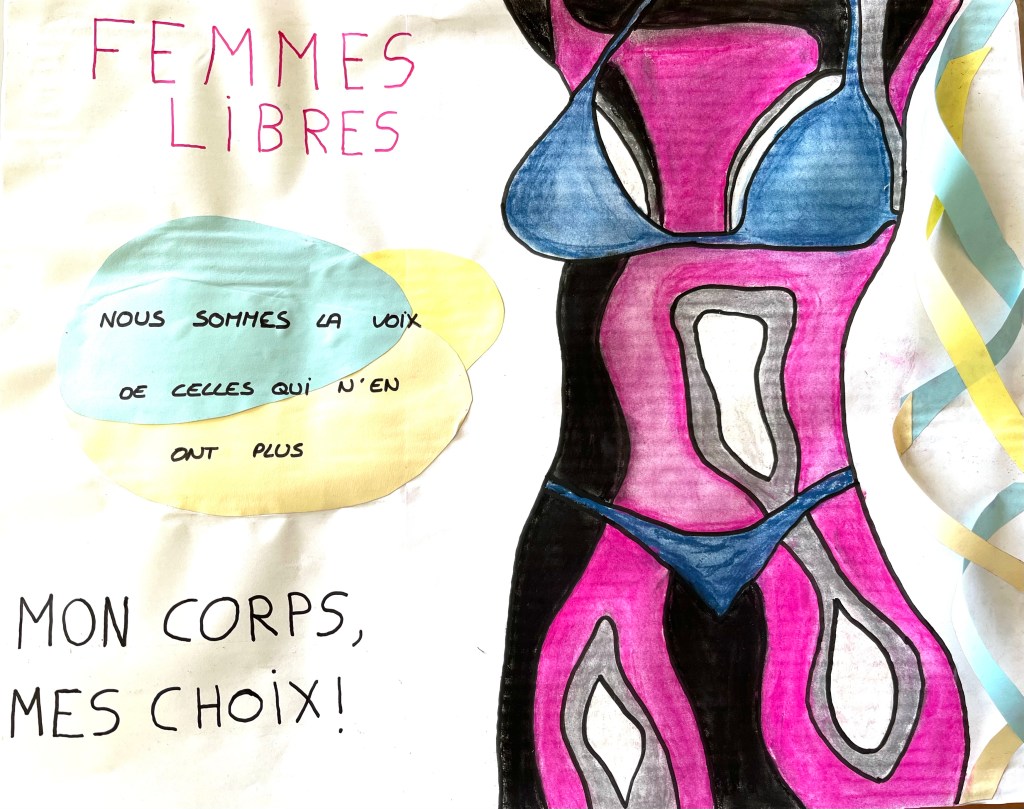 FEMMES
LiBRES
NOUS SOMMES LA VOIX
DE CELLES QUi N'EN
ONT PLUS
MON CORPS,
MES CHOiX!